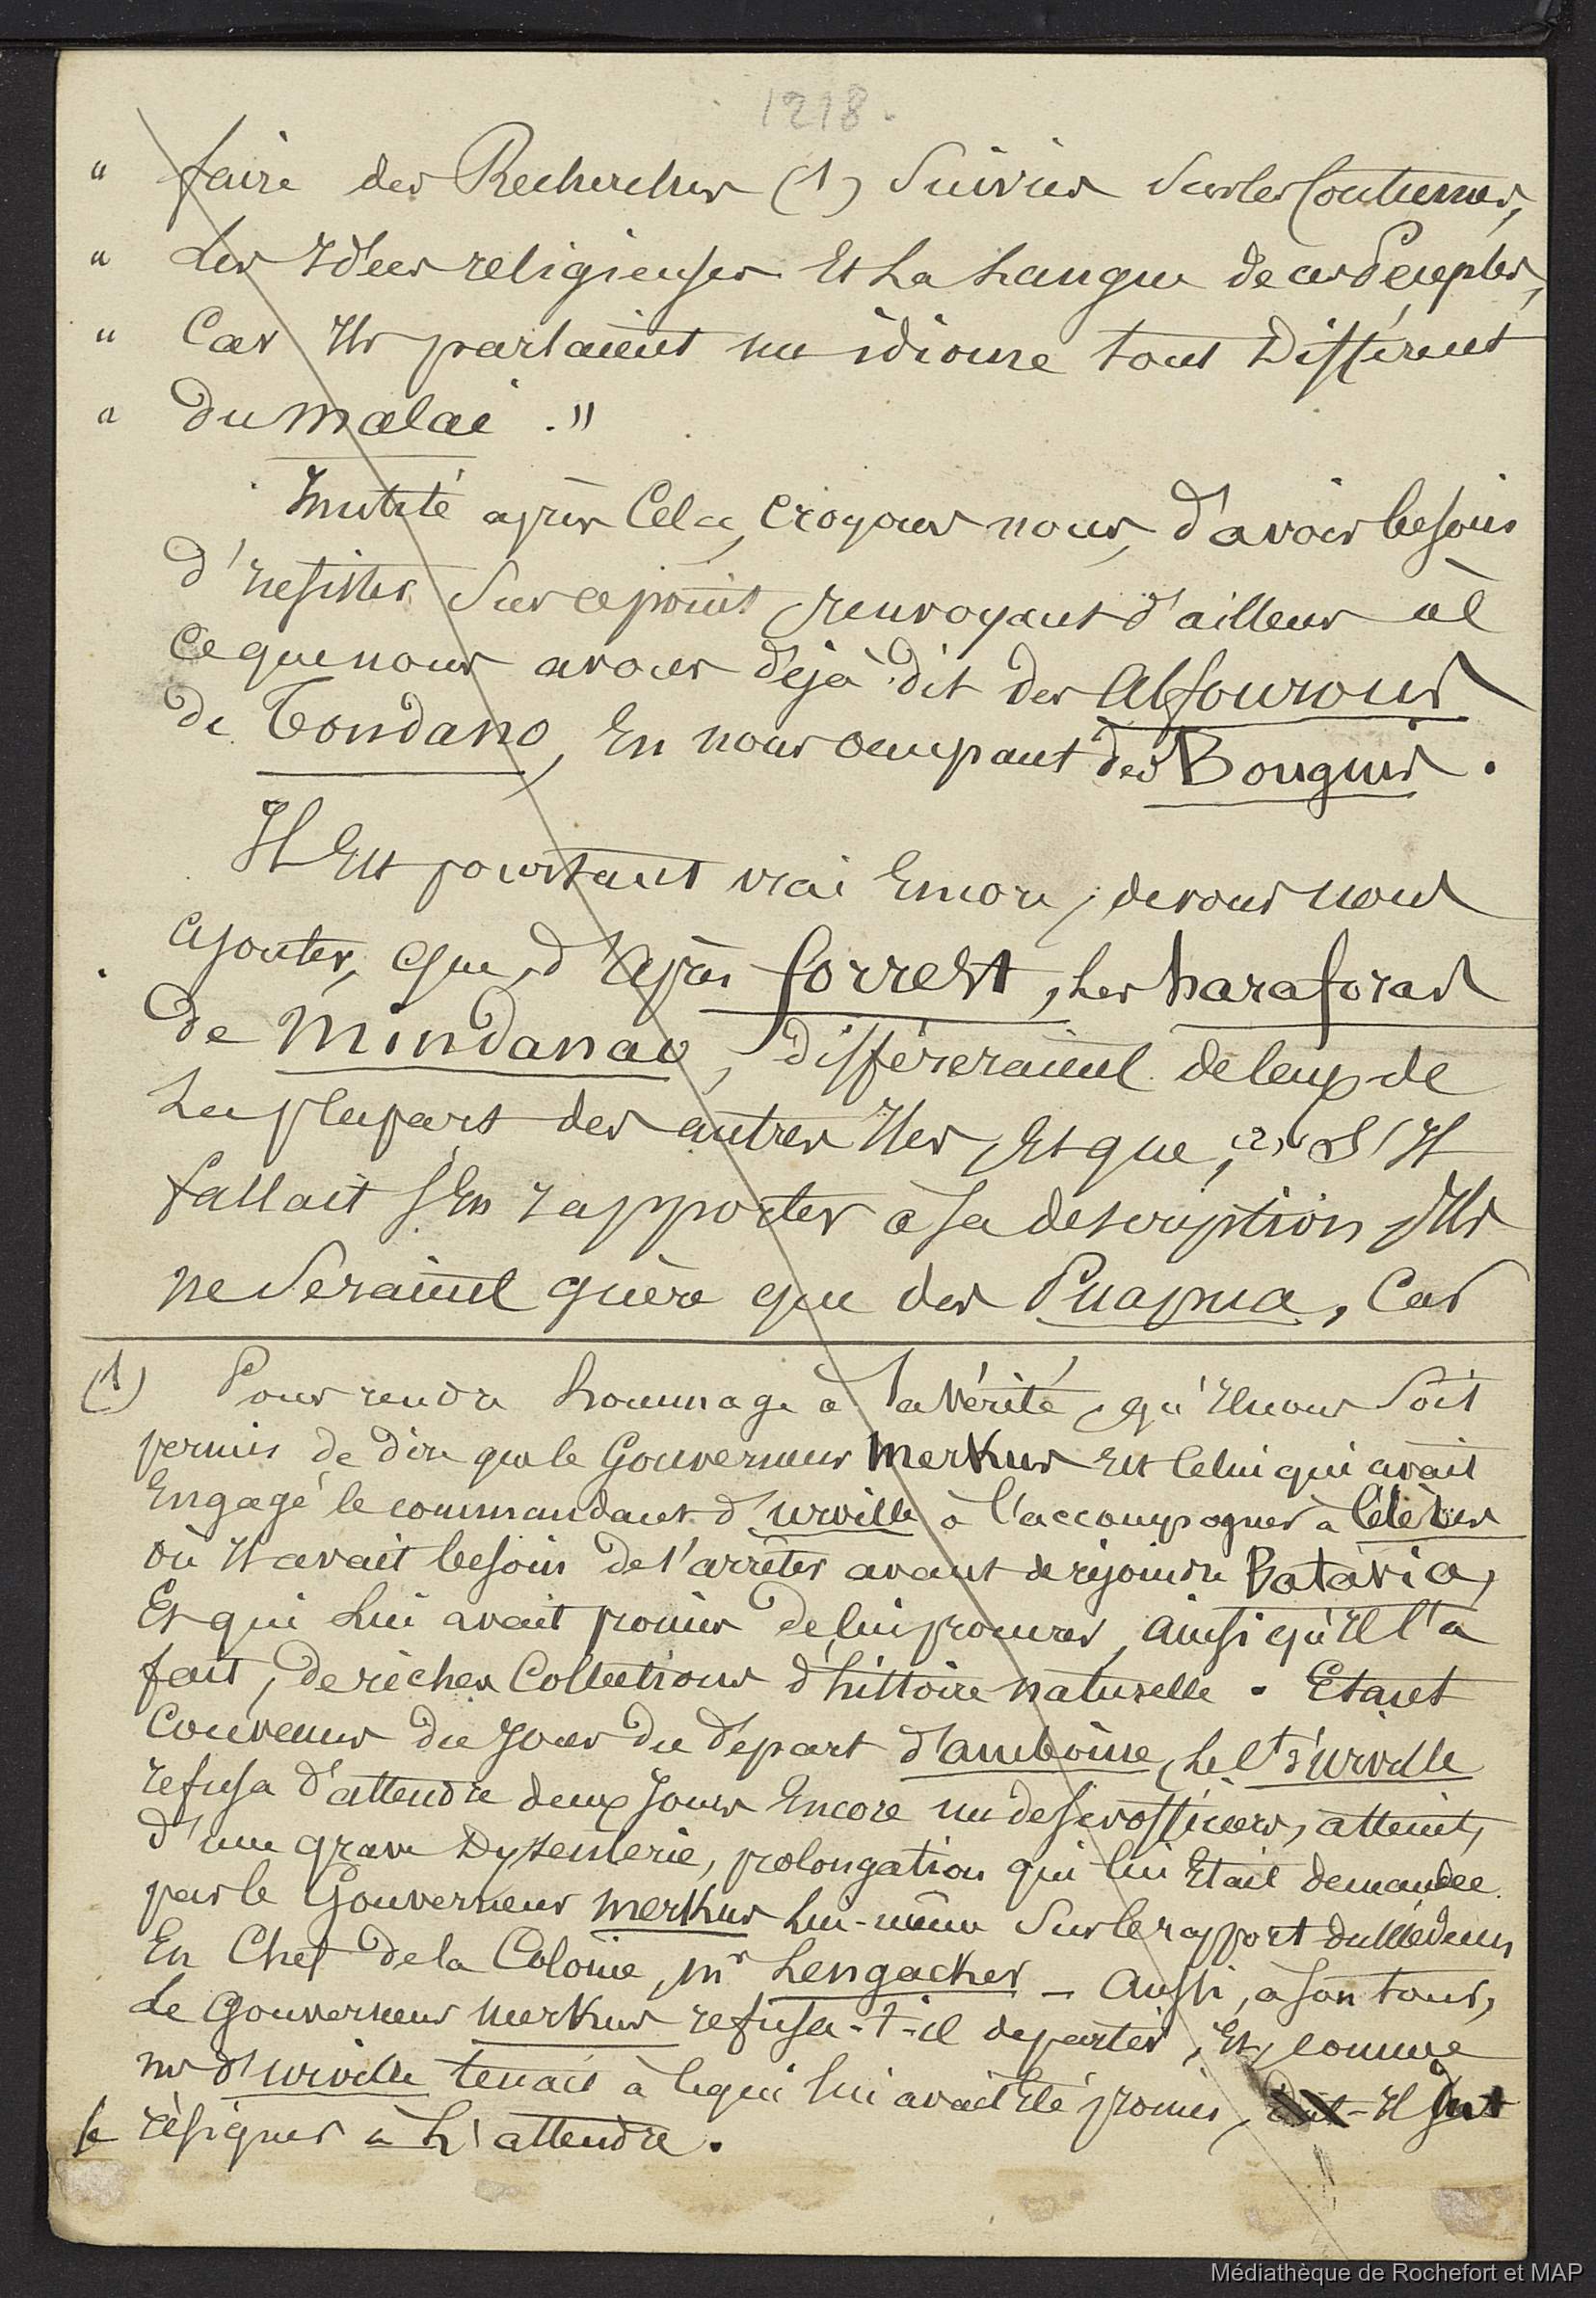 1218.
" faire des Recherches (1) Suivies Sur les Coutumes,
" Les Idées religieuses Et La Langue de ces Peuples,
" Car Ils parlaient un idiome tout Différent
" du malai . "
Inutile après Cela, Croyons nous, d'avoir besoin
d'insister Sur ce point, renvoyant d'ailleurs à
Ce que nous avons déjà dit des Alfourous
de Tondano, En nous occupant des Bouguis .
Il Est pourtant vrai Encore, devons nous
ajouter, que, d'après forrest, Les haraforas
de Mindanao, différeraient de ceux de
La plupart des autres Iles, Et que, (2) S'Il
fallait S'En rapporter à Sa description, Ils
ne Seraient guère que des Puapua, Car
(1) Pour rendre hommage à la Vérité, qu'Il nous Soit
permis de dire que le Gouverneur Merkus Est Celui qui avait
Engagé le commandant d'urville à l'accompagner à Célèbes
où Il avait besoin de s'arrêter avant de rejoindre Batavia,
Et qui Lui avait promis de lui procurer, ainsi qu'Il l'a
fait, de riches Collections d'histoire naturelle . Etant
Convenus du Jour du départ d'amboine, Le Ct d'urville
refusa d'attendre deux Jours Encore un de ses officiers, atteint,
d'une grave Dyssenterie, prolongation qui lui Etait demandée
par le Gouverneur Merkus Lui-même Sur le rapport du Médecin
En Chef de la Colonie, Mr Lengacker _ Aussi, à son tour,
Le Gouverneur Merkus refusa-t-il de partir, Et, comme
Mr d'urville tenait à ce qui lui avait Eté promis, Il fut
se résigner à L'attendre .
Médiathèque de Rochefort et MAP